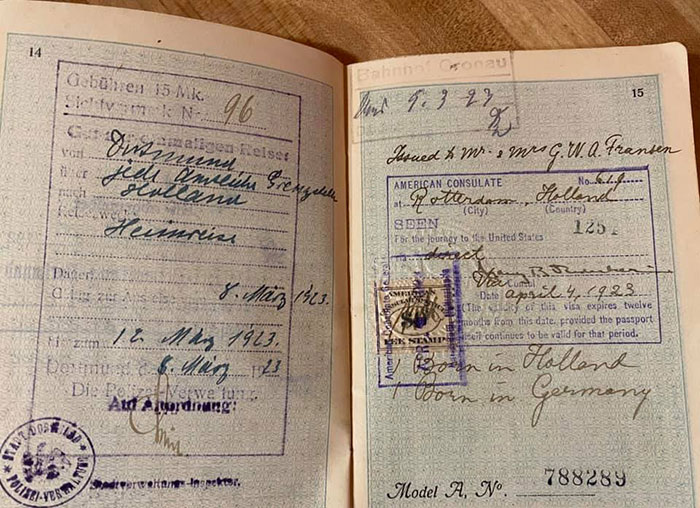 14
Gebühren 15 Mk.
Sichtvermerk Nr. 96
Gut zur einmaligen Reise:
von Dortmund
über jede Grenzstelle
nach Holland
Reisezweck
Heimreise
8. März 1923.
12. März 1923.
Dortmund, d. 8. März 1923
Die Polizei-Verwaltung.
Auf Anordnung:
Stadtverwaltungs-Inspektor.
Bahnhof Gronau
5.3.23
15
Issued to Mr. & Mrs G. W. A. Fransen
AMERICAN CONSULATE No.
at Rotterdam, Holland
(City) (Country)
SEEN 1251
For the journey to the United States
direct
Consul
Date April 4, 1923
(The validity of this visa expires twelve
months from this date, provided the passport
itself continues to be valid for that period.
FEE STAMP
1 Born in Holland
1 Born in Germany
Model A, No. 788289